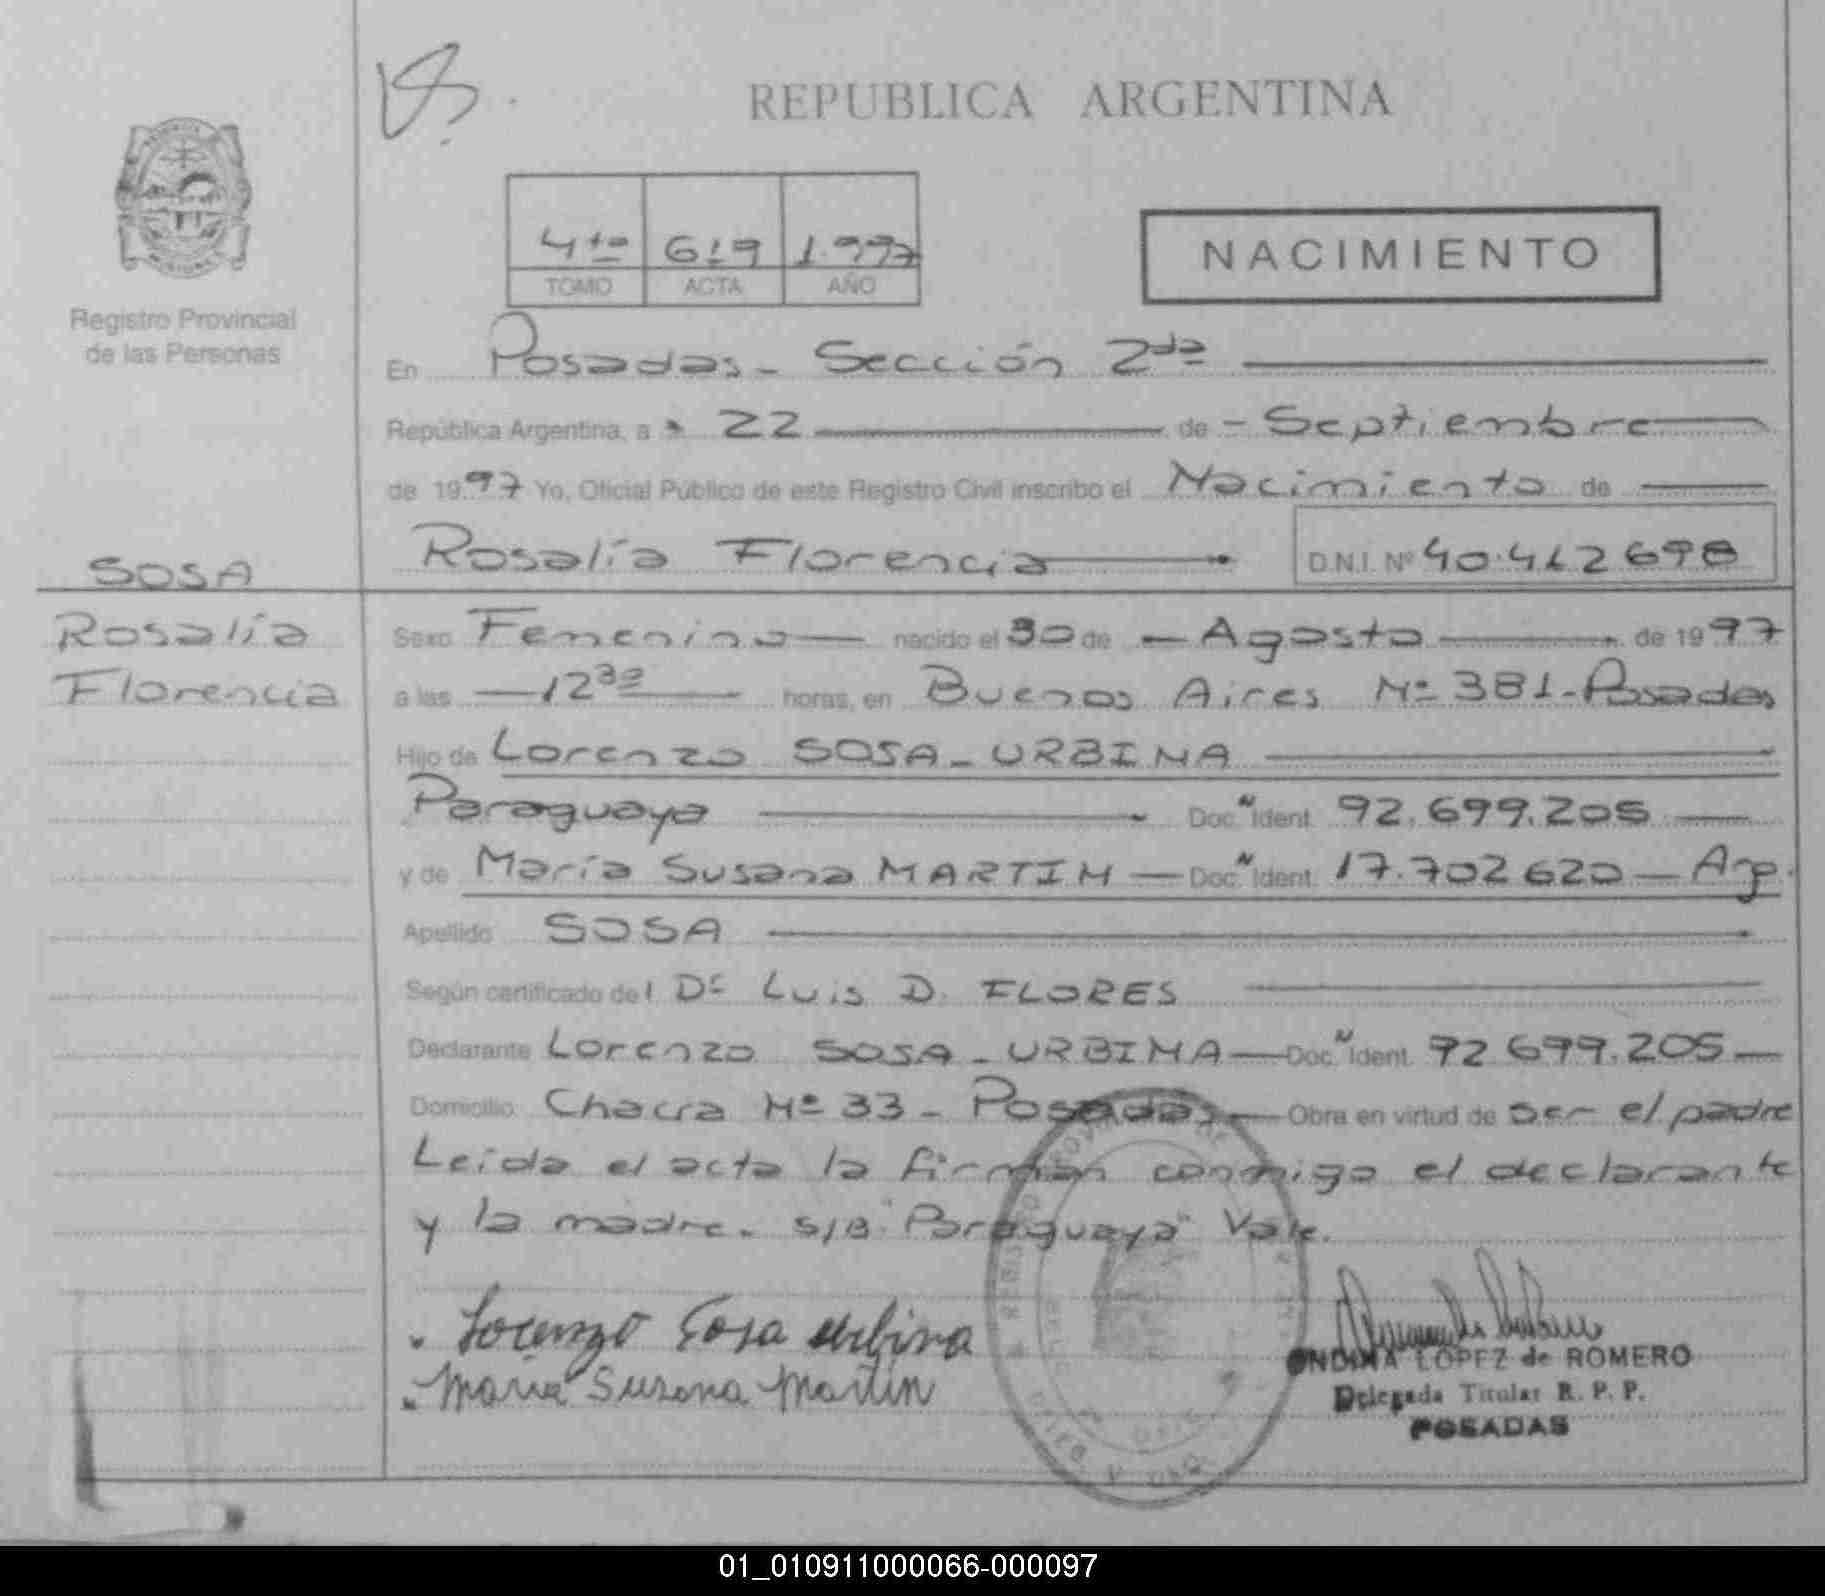 REPUBLICA ARGENTINA
4to 619 1.997
TOMO ACTA AÑO
NACIMIENTO
Registro Provincial
de las Personas
En Posadas - Sección 2da
República Argentina, a 22 de - Septiembre
de 1997 Yo, Oficial Público de este Registro Civil inscribo el Nacimiento de
Rosalía Florencia D.N.I. Nº 40.412 698
SOSA
Rosalía
Florencia
Sexo Femenino nacido el 30 de Agosto de 1997
a las 12 30 horas, en Buenos Aires Nº 381 - Posadas
Hijo de Lorenzo SOSA - URBINA
Paraguaya Doc. Ident. 92.699.205
y de María Susana MARTIN Doc. Ident. 17.702 620 - Arg.
Apellido SOSA
Según certificado del Dr Luis D. FLORES
Declarante Lorenzo SOSA - URBINA Doc. Ident. 92 699.205
Domicilio Chacra Nº 33 - Posadas - Obra en virtud de ser el padre
Leída el acta la firman conmigo el declarante
y la madre. S/B "Paraguaya" Vale.
Lorenzo Sosa urbina
María Susana Martin
ONDINA LOPEZ de ROMERO
Delegada Titular R. P. P.
POSADAS
01_010911000066-000097